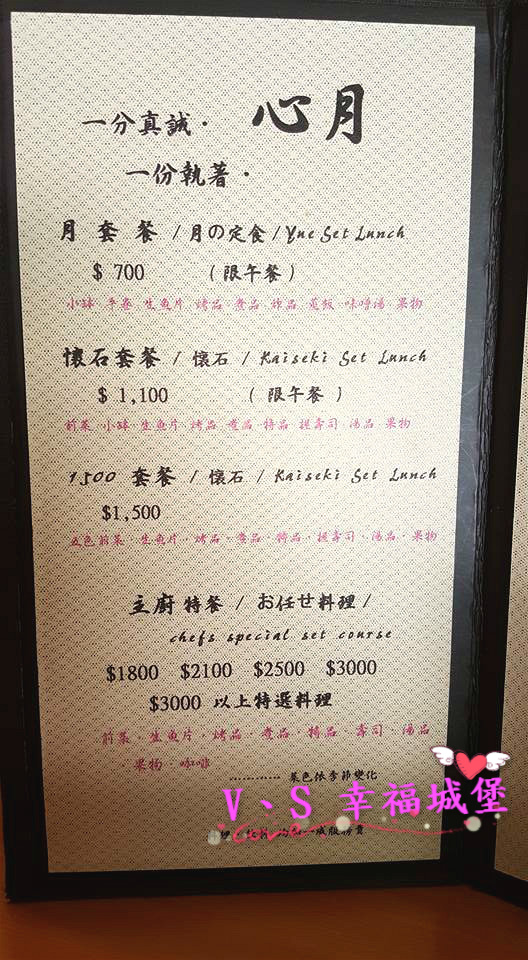 心月
一分真誠·
一份執著·
月 套 餐 / 月の定食 / Yue Set Lunch
$ 700 （ 限午餐 ）
小缽·手卷·生魚片·烤品·煮品·炸品·蒸飯·味噌湯·果物
懷石套餐 / 懷石 / Kaiseki Set Lunch
$ 1,100 （ 限午餐 ）
前菜·小缽·生魚片·烤品·煮品·特品·握壽司·湯品·果物
1500 套餐 / 懷石 / Kaiseki Set Lunch
$1,500
五色前菜·生魚片·烤品·煮品·特品·握壽司·湯品·果物
主廚特餐 / お任せ料理 /
chefs special set course
$1800 $2100 $2500 $3000
$3000 以上特選料理
前菜·生魚片·烤品·煮品·特品·壽司·湯品
·果物·咖啡
············ 菜色依季節變化
V、S 幸福城堡
一成服務費